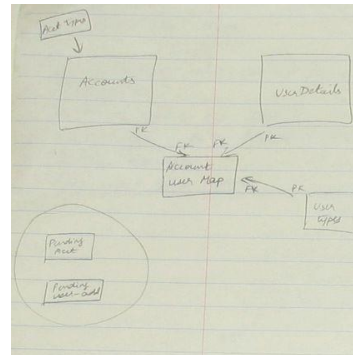 Acct Types
Accounts
User Details
PK
PK
FK
FK
Account
User Map
FK
PK
User
Types
Pending
Acct
Pending
user-add